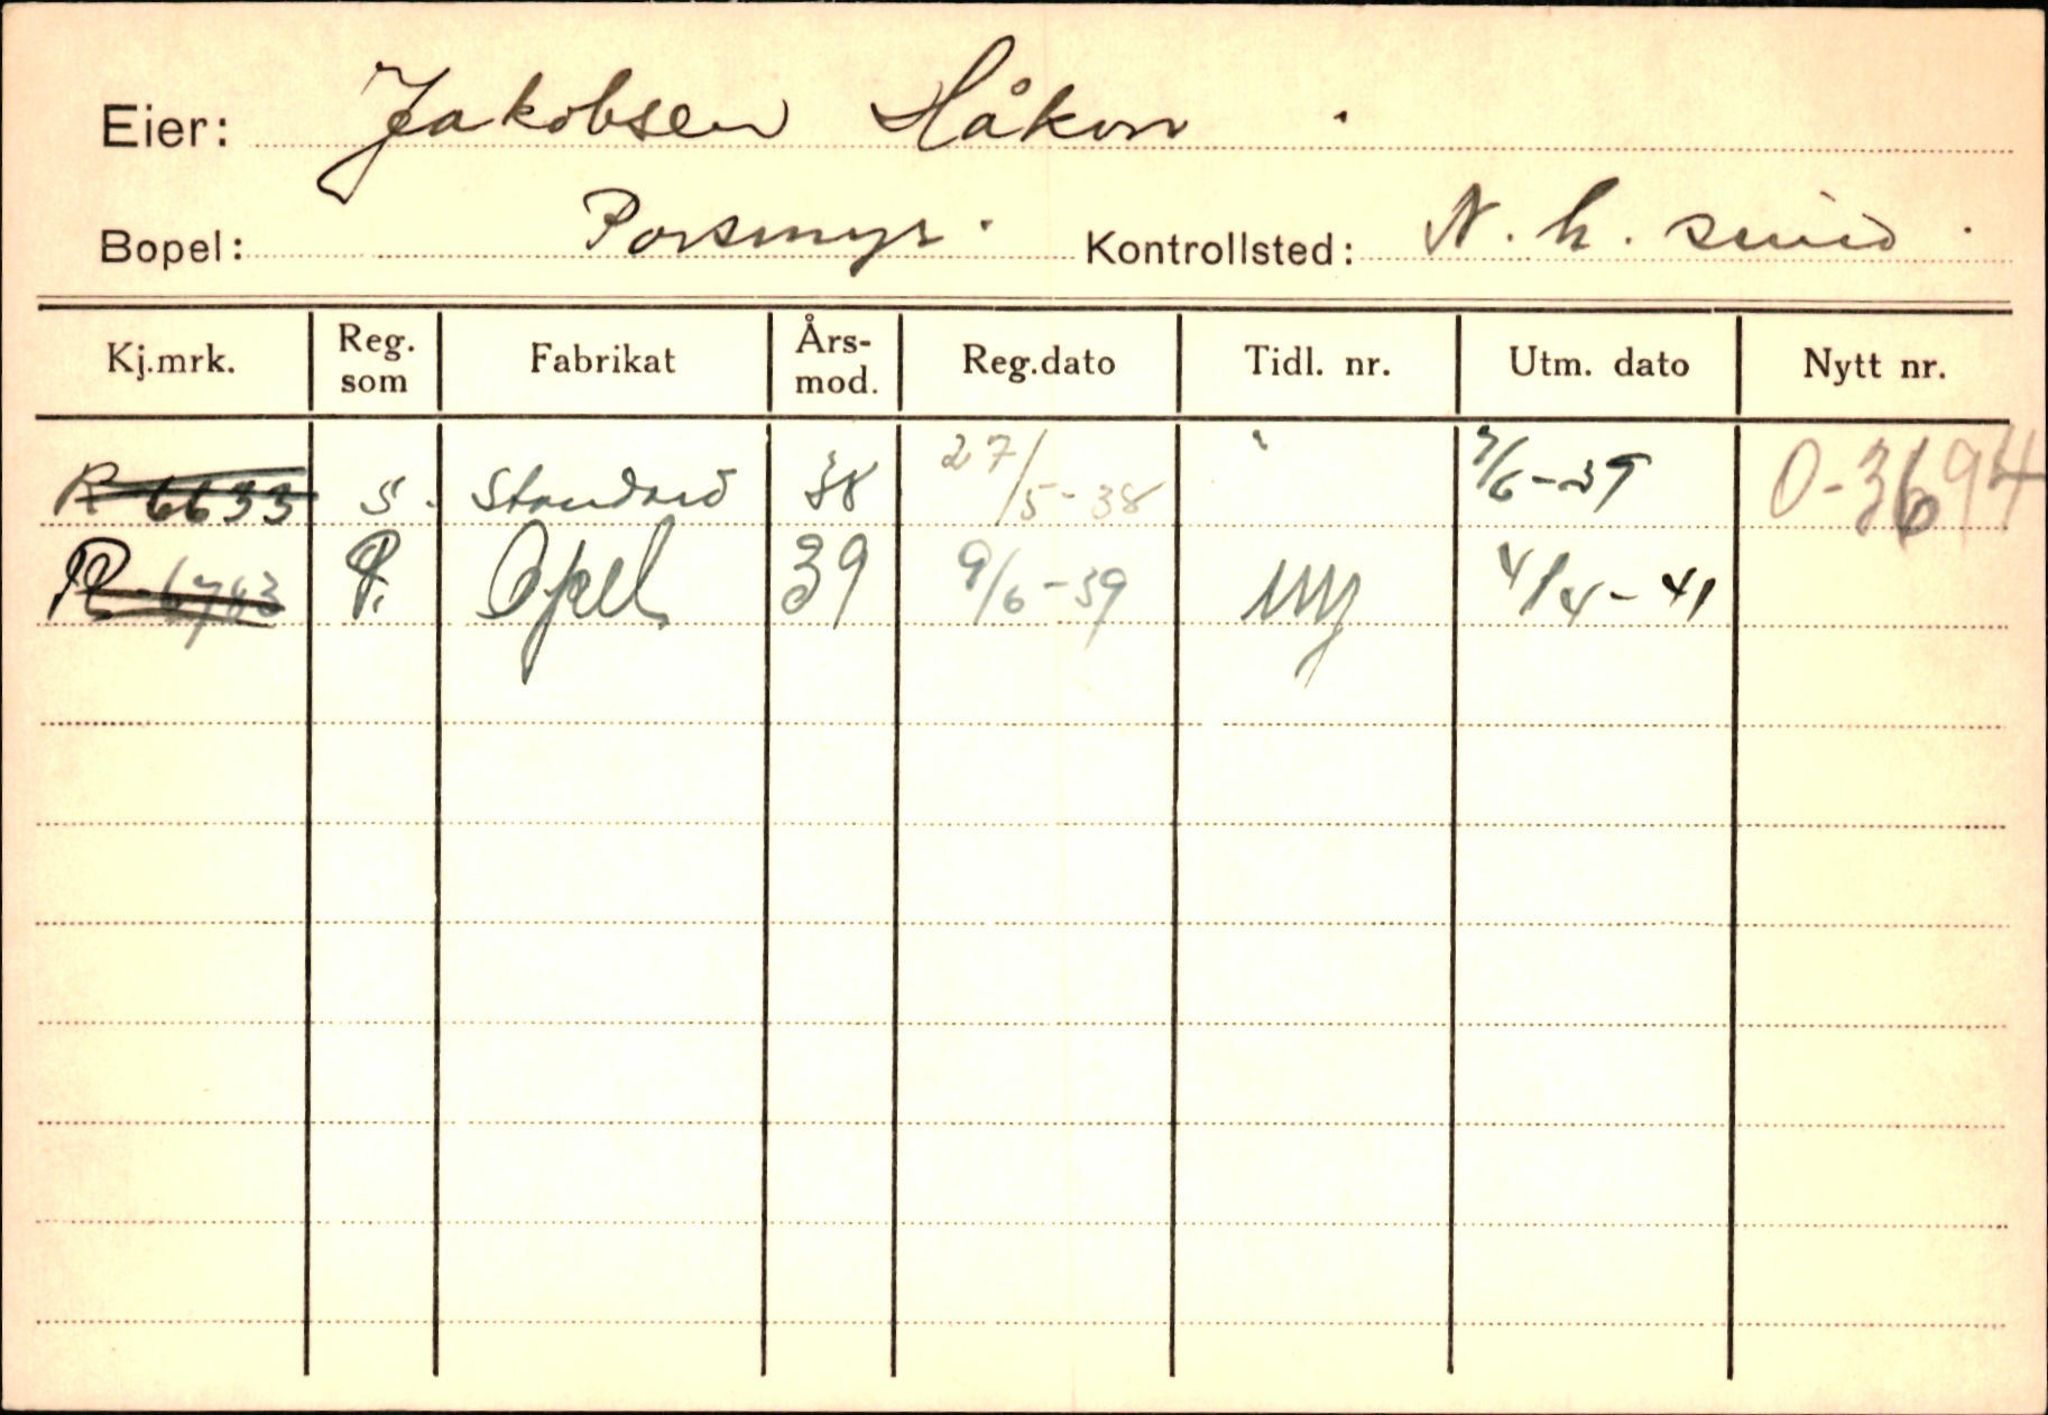 Eier: Jakobsen Håkon.
Bopel: Porsmyr. Kontrollsted: N. h. sund.
Kj.mrk. Reg. som Fabrikat Års-mod. Reg.dato Tidl. nr. Utm. dato Nytt nr.
R-6633 S. Standard 38 27/5-38 7/6-39 O-3694
R-6763 P. Opel 39 9/6-39 ny 4/4-41